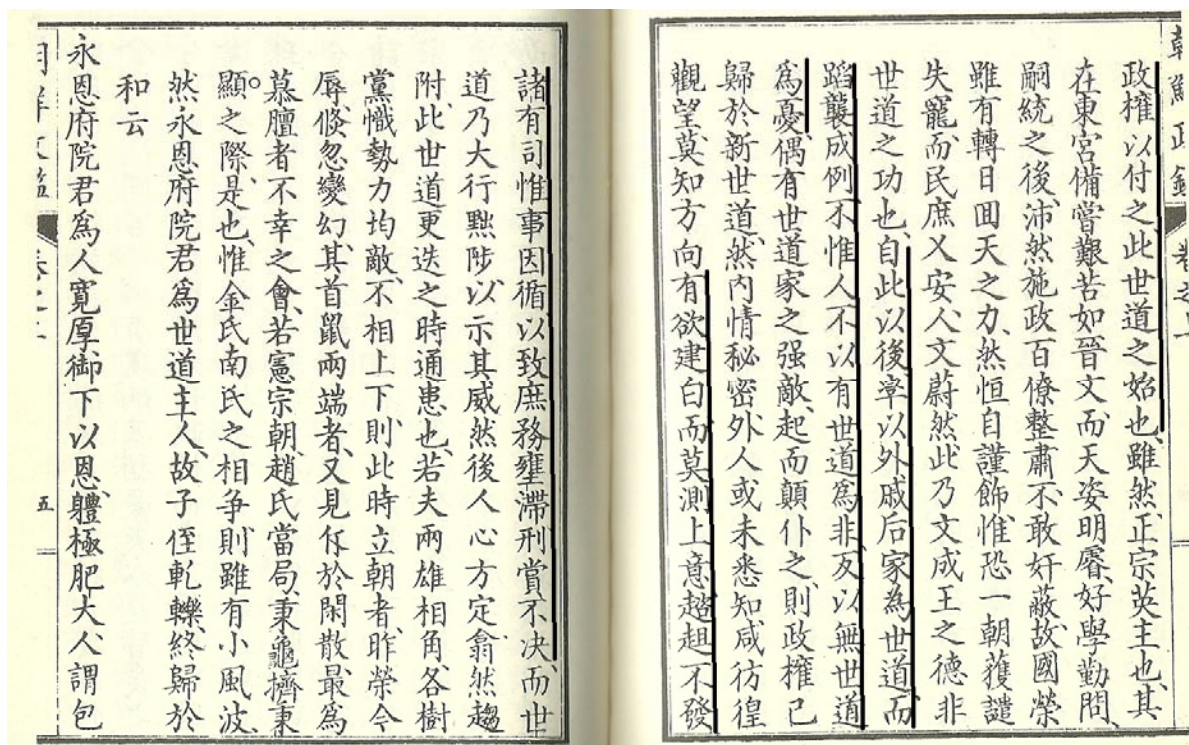 政權以付之、此世道之始也、雖然正宗英主也、其
在東宮備嘗艱苦如晉文、而天姿明睿、好學勤問、
嗣統之後、沛然施政、百僚整肅、不敢奸蔽、故國榮
雖有轉日回天之力、然恒自謹飾、惟恐一朝獲譴
失寵、而民庶乂安、人文蔚然、此乃文成王之德、非
世道之功也、自此以後、率以外戚后家為世道、而
蹈襲成例、不惟人不以有世道爲非、反以無世道
爲憂、偶有世道家之强敵、起而顚仆之、則政權已
歸於新世道、然內情秘密、外人或未悉知、咸彷徨
觀望、莫知方向、有欲建白、而莫測上意、趦趄不發
諸有司惟事因循、以致庶務壅滯、刑賞不決、而世
道乃大行黜陟、以示其威、然後人心方定、翕然趨
附、此世道更迭之時通患也、若夫兩雄相角、各樹
黨幟、勢力均敵、不相上下、則此時立朝者、昨榮今
辱、倏忽變幻、其首鼠兩端者、又見斥於閑散、最爲
慕膻者不幸之會、若憲宗朝、趙氏當局、秉龜擠東
顯之際、是也、惟金氏南氏之相爭、則雖有小風波、
然永恩府院君爲世道主人、故子侄軋轢、終歸於
和云
永恩府院君爲人寬厚、御下以恩、軆極肥大、人謂包
五